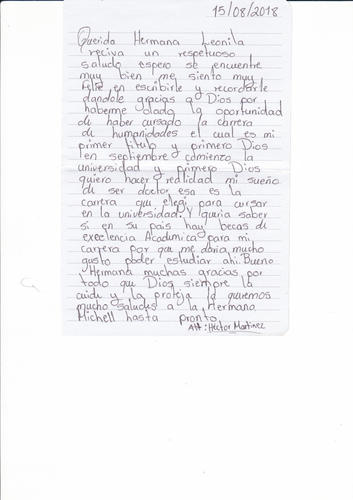 15/08/2018
Querida Hermana Leonila
reciva un respetuoso
saludo espero se encuentre
muy bien me siento muy
feliz en escribirle y recordarle
dandole gracias a Dios por
haberme dado la oportunidad
de haber cursado la carrera
de humanidades el cual es mi
primer titulo y primero Dios
en septiembre comienzo la
universidad y primero Dios
quiero hacer realidad mi sueño
de ser doctor esa es la
carrera que elegi para cursar
en la universidad. Y queria saber
si en su pais hay becas de
exelencia Academica para mi
carrera por que me daria mucho
gusto poder estudiar ahi. Bueno
Hermana muchas gracias por
todo que Dios siempre la
cuide y la proteja la queremos
mucho saludes a la Hermana
Michell hasta pronto
Att: Hector Martinez